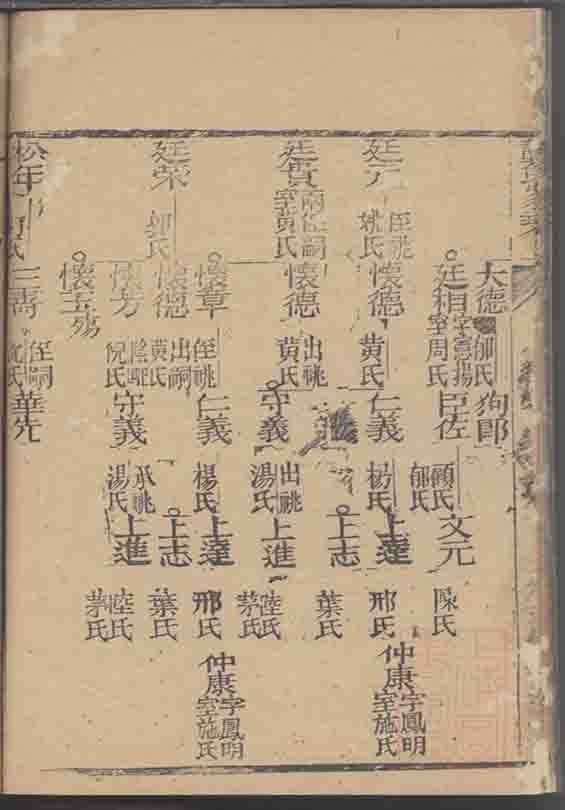 大德 郁氏 狗郎
廷相 字憲揚 室周氏 臣佐 顧氏 郁氏 文元 陳氏
廷元 姪祧 姚氏 懷德 黄氏 仁義 楊氏 上達 邢氏 仲康 字鳳明 室施氏
上志 葉氏
廷貴 兩姪嗣 室黄氏 懷德 出祧 黄氏 守義 出祧 湯氏 上進 陸氏 茅氏
懷章 姪祧 仁義 楊氏 上達 邢氏 仲康 字鳳明 室施氏
廷荣 郭氏 懷德 出嗣 黄氏 上志 葉氏
懷芳 倪氏 守義 承祧 湯氏 上進 陸氏 茅氏
懷玉 殤
松年 三壽 姪嗣 沈氏 華先